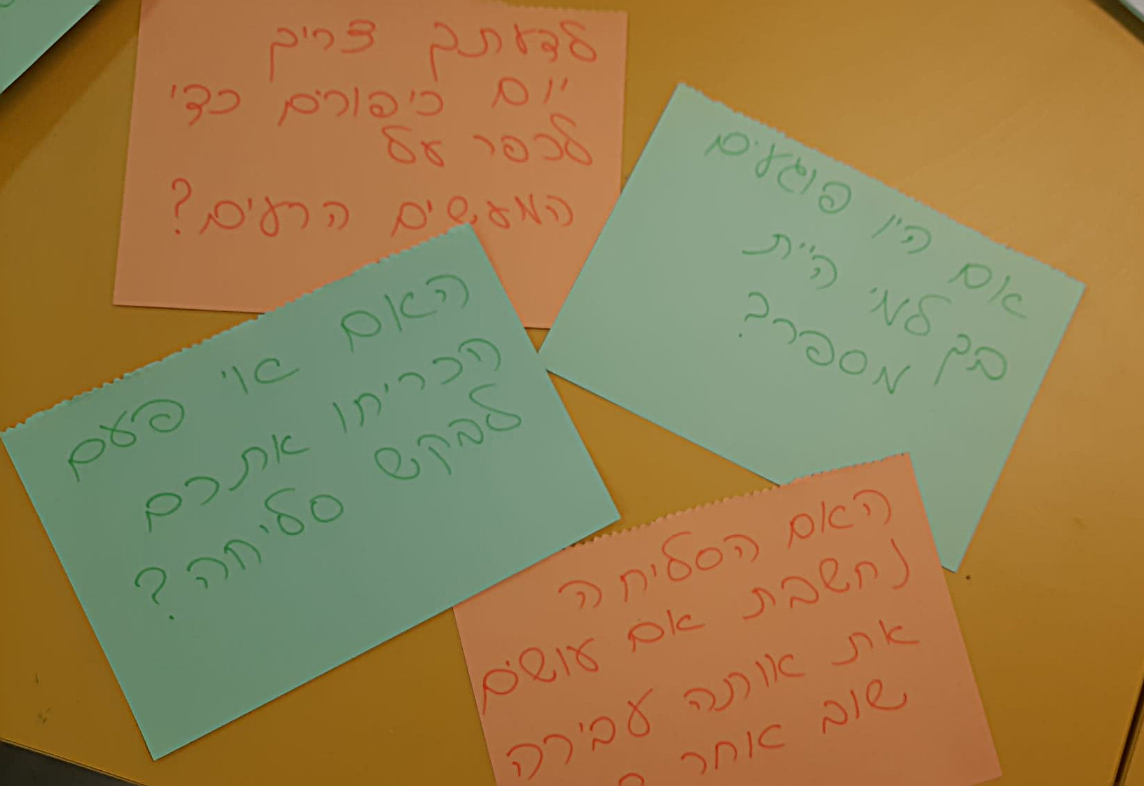 לדעתך צריך
יום כיפורים כדי
לכפר על
המעשים הרעים?
אם היו פוגעים
בך למי היית
מספר?
האם אי פעם
הכריחו אתכם
לבקש
סליחה?
האם הסליחה
נחשבת אם עושים
את אותה עבירה
שוב אחר